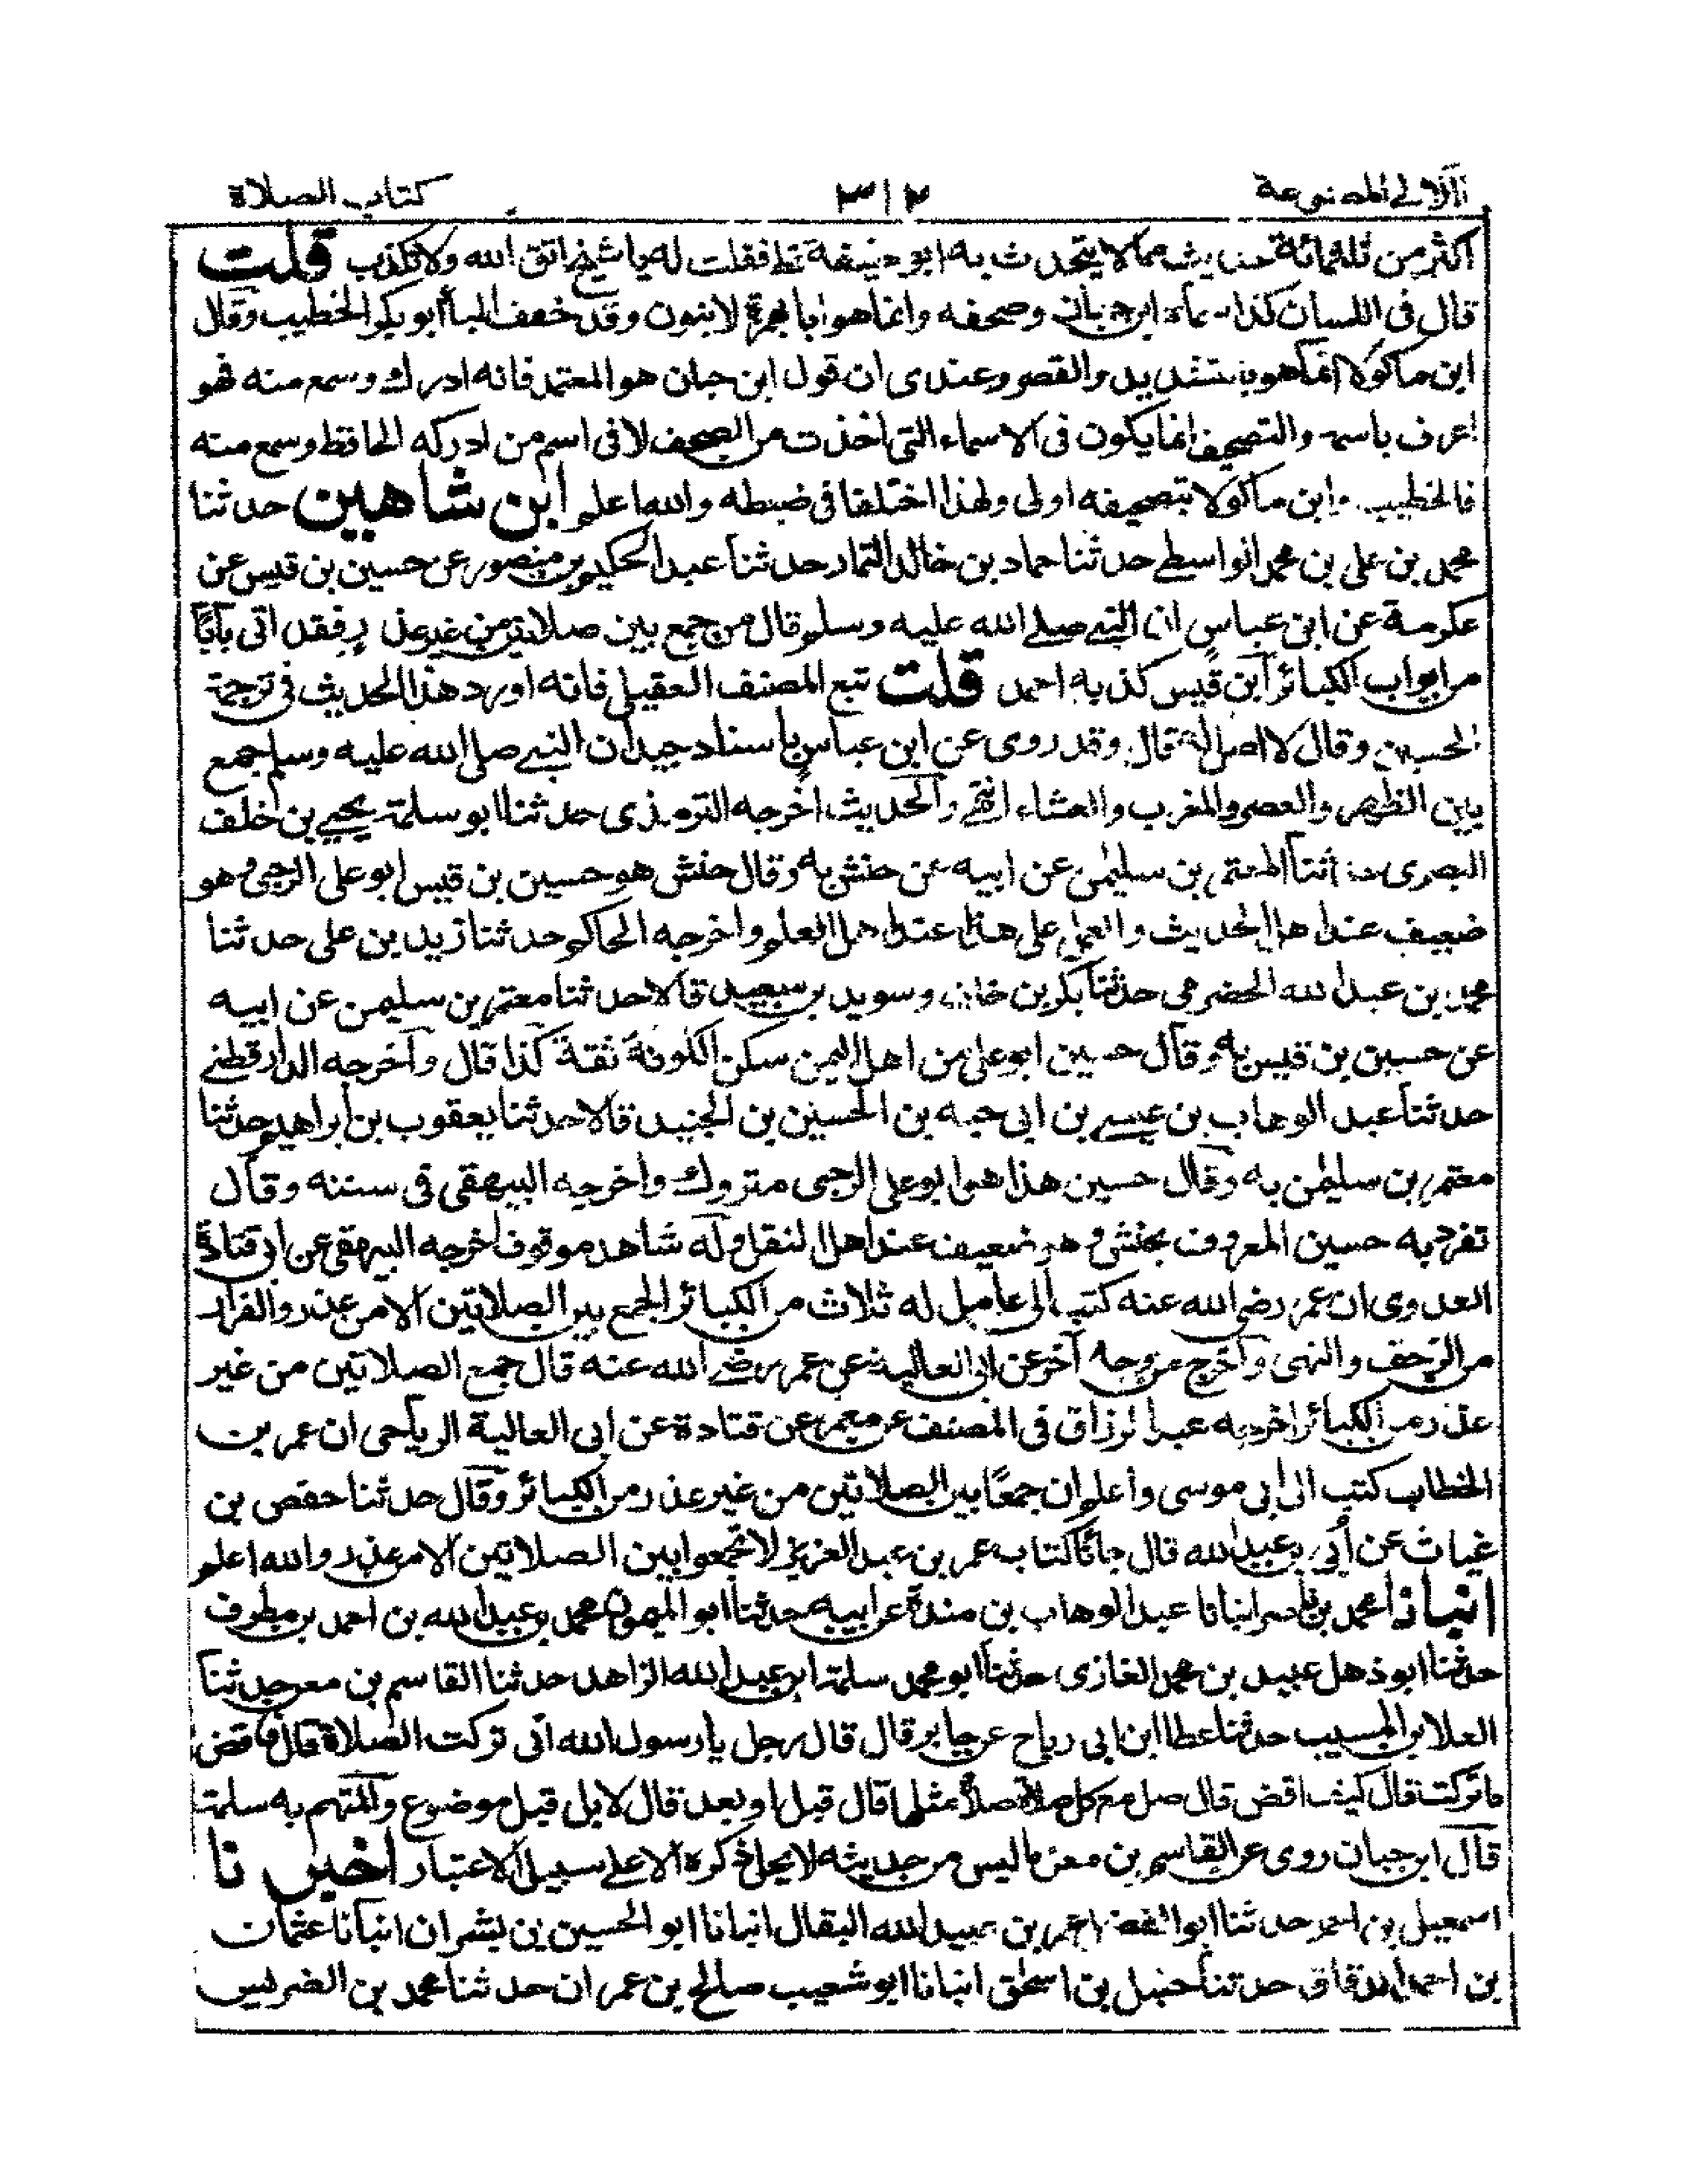 اللآلئ المصنوعة ٣١٢ كتاب الصلاة
اكثر من ثلثمائة حديث مما لا يتحدث به ابو حنيفة قط فقلت له يا شيخ اتق الله ولا تكذب قلت
قال فى اللسان كذا سماه ابن حبان وصحفه وانما هو ابا بجرة لا بنون وقد خفف البا أبو بكر الخطيب وقال
ابن ماكولا انما هو بتشديد والقصر وعندى ان قول ابن حبان هو المعتمد فانه ادرك وسمع منه فهو
اعرف باسمه والتصحيف انما يكون فى الاسماء التى اخذت من الصحف لا فى اسم من ادركه الحافظ وسمع منه
فالخطيب وابن ماكولا بتصحيفه اولى ولهذا اختلفا فى ضبطه والله اعلم ابن شاهين حدثنا
محمد بن على بن محمد الواسطے حدثنا حماد بن خالد التمار حدثنا عبد الحكيم بن منصور عن حسين بن قيس عن
عكرمة عن ابن عباس ان النبے صلے الله عليه وسلم قال من جمع بين صلاتين من غير عذر فقد اتى بابًا
من ابواب الكبائر ابن قيس كذبه احمد قلت تبع المصنف العقيلى فانه اورد هذا الحديث فى ترجمة
الحسين وقال لا اصل له قال وقد روى عن ابن عباس باسناد جيد ان النبے صلى الله عليه وسلم جمع
بين الظهر والعصر والمغرب والعشاء انتهے والحديث اخرجه الترمذى حدثنا ابو سلمة يحيے بن خلف
البصرى حدثنا المعتمر بن سليمٰن عن ابيه عن حنش به وقال حنش هو حسين بن قيس ابو على الرحبى وهو
ضعيف عند اهل الحديث والعمل على هذا عند اهل العلم واخرجه الحاكم حدثنا زيد بن على حدثنا
محمد بن عبد الله الحضرمى حدثنا بكر بن خلف وسويد بن سعيد قالا حدثنا معتمر بن سليمن عن ابيه
عن حسين بن قيس به وقال حسين ابو على من اهل اليمن سكن الكوفة ثقة كذا قال وأخرجه الدارقطنے
حدثنا عبد الوهاب بن عيسے بن ابى حبه بن الحسين بن الجنيد قالا حدثنا يعقوب بن ابراهيم حدثنا
معتمر بن سليمٰن به وقال حسين هذا هو ابو على الرحبى متروك واخرجه البيهقى فى سننه وقال
تفرد به حسين المعروف بحنش وهو ضعيف عند اهل النقل وله شاهد موقوف اخرجه البيهقى عن ابى قتادة
العدوى ان عمر رضى الله عنه كتب الى عامل له ثلاث من الكبائر الجمع بين الصلاتين الا من عذر والفرار
من الزحف والنهى وأخرج من وجه آخر عن ابى العالية عن عمر رضے الله عنه قال جمع الصلاتين من غير
عذر من الكبائر اخرجه عبد الرزاق فى المصنف عن معمر عن قتادة عن ابى العالية الرياحى ان عمر بن
الخطاب كتب الى ابى موسى واعلم ان جمعًا بين الصلاتين من غير عذر من الكبائر وقال حدثنا حفص بن
غياث عن أبى بن عبد الله قال جائنا كتاب عمر بن عبد العزيز لا تجمعوا بين الصلاتين الا من عذر والله اعلم
انبانا محمد بن ناصر انبانا عبد الوهاب بن مندة عن ابيه حدثنا ابو الميمون محمد بن عبد الله بن احمد بن مطرف
حدثنا ابو ذهل عبيد بن محمد الغازى حدثنا ابو محمد سلمة ابن عبد الله الزاهد حدثنا القاسم بن معن حدثنا
العلا بن المسيب حدثنا عطا ابن ابى رباح عن جابر قال قال رجل يا رسول الله انى تركت الصلاة قال فاقض
ما تركت قال كيف اقض قال صل مع كل صلاة صلاة مثلها قال قبل او بعد قال لا بل قبل موضوع والمتهم به سلمة
قال ابن حبان روى عن القاسم بن معن ما ليس من حديثه لا يحل ذكره الا على سبيل الاعتبار اخبرنا
اسمعيل بن احمد حدثنا ابو الفضل عمر بن عبيد الله البقال انبانا ابو الحسين بن بشران انبانا عثمان
بن احمد الدقاق حدثنا حنبل بن اسحٰق انبانا ابو شعيب صالح بن عمران حدثنا محمد بن الضريس